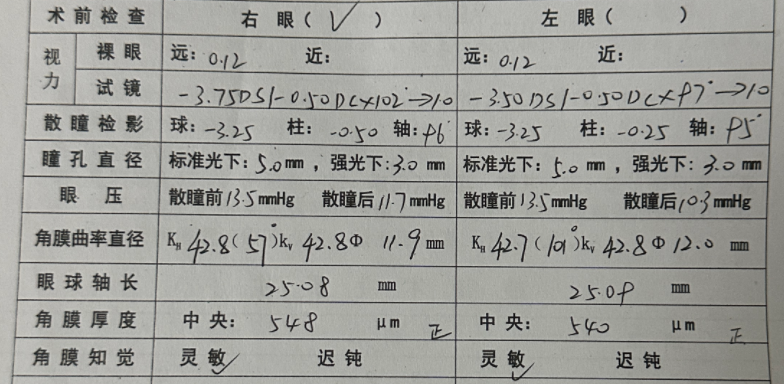 术前检查 右眼(✓) 左眼( )
视力 裸眼 远: 0.12 近: 远: 0.12 近:
试镜 -3.75DS/-0.50DC×102°→1.0 -3.50DS/-0.50DC×97°→1.0
散瞳检影 球: -3.25 柱: -0.50 轴: 96° 球: -3.25 柱: -0.25 轴: 95°
瞳孔直径 标准光下: 5.0 mm , 强光下: 3.0 mm 标准光下: 5.0 mm , 强光下: 3.0 mm
眼压 散瞳前 13.5 mmHg 散瞳后 11.7 mmHg 散瞳前 13.5 mmHg 散瞳后 10.3 mmHg
角膜曲率直径 K_H 42.8(57°)k_V 42.8 Φ 11.9 mm K_H 42.7(101°)k_V 42.8 Φ 12.0 mm
眼球轴长 25.08 mm 25.09 mm
角膜厚度 中央: 548 μm 正 中央: 540 μm 正
角膜知觉 灵敏✓ 迟钝 灵敏✓ 迟钝